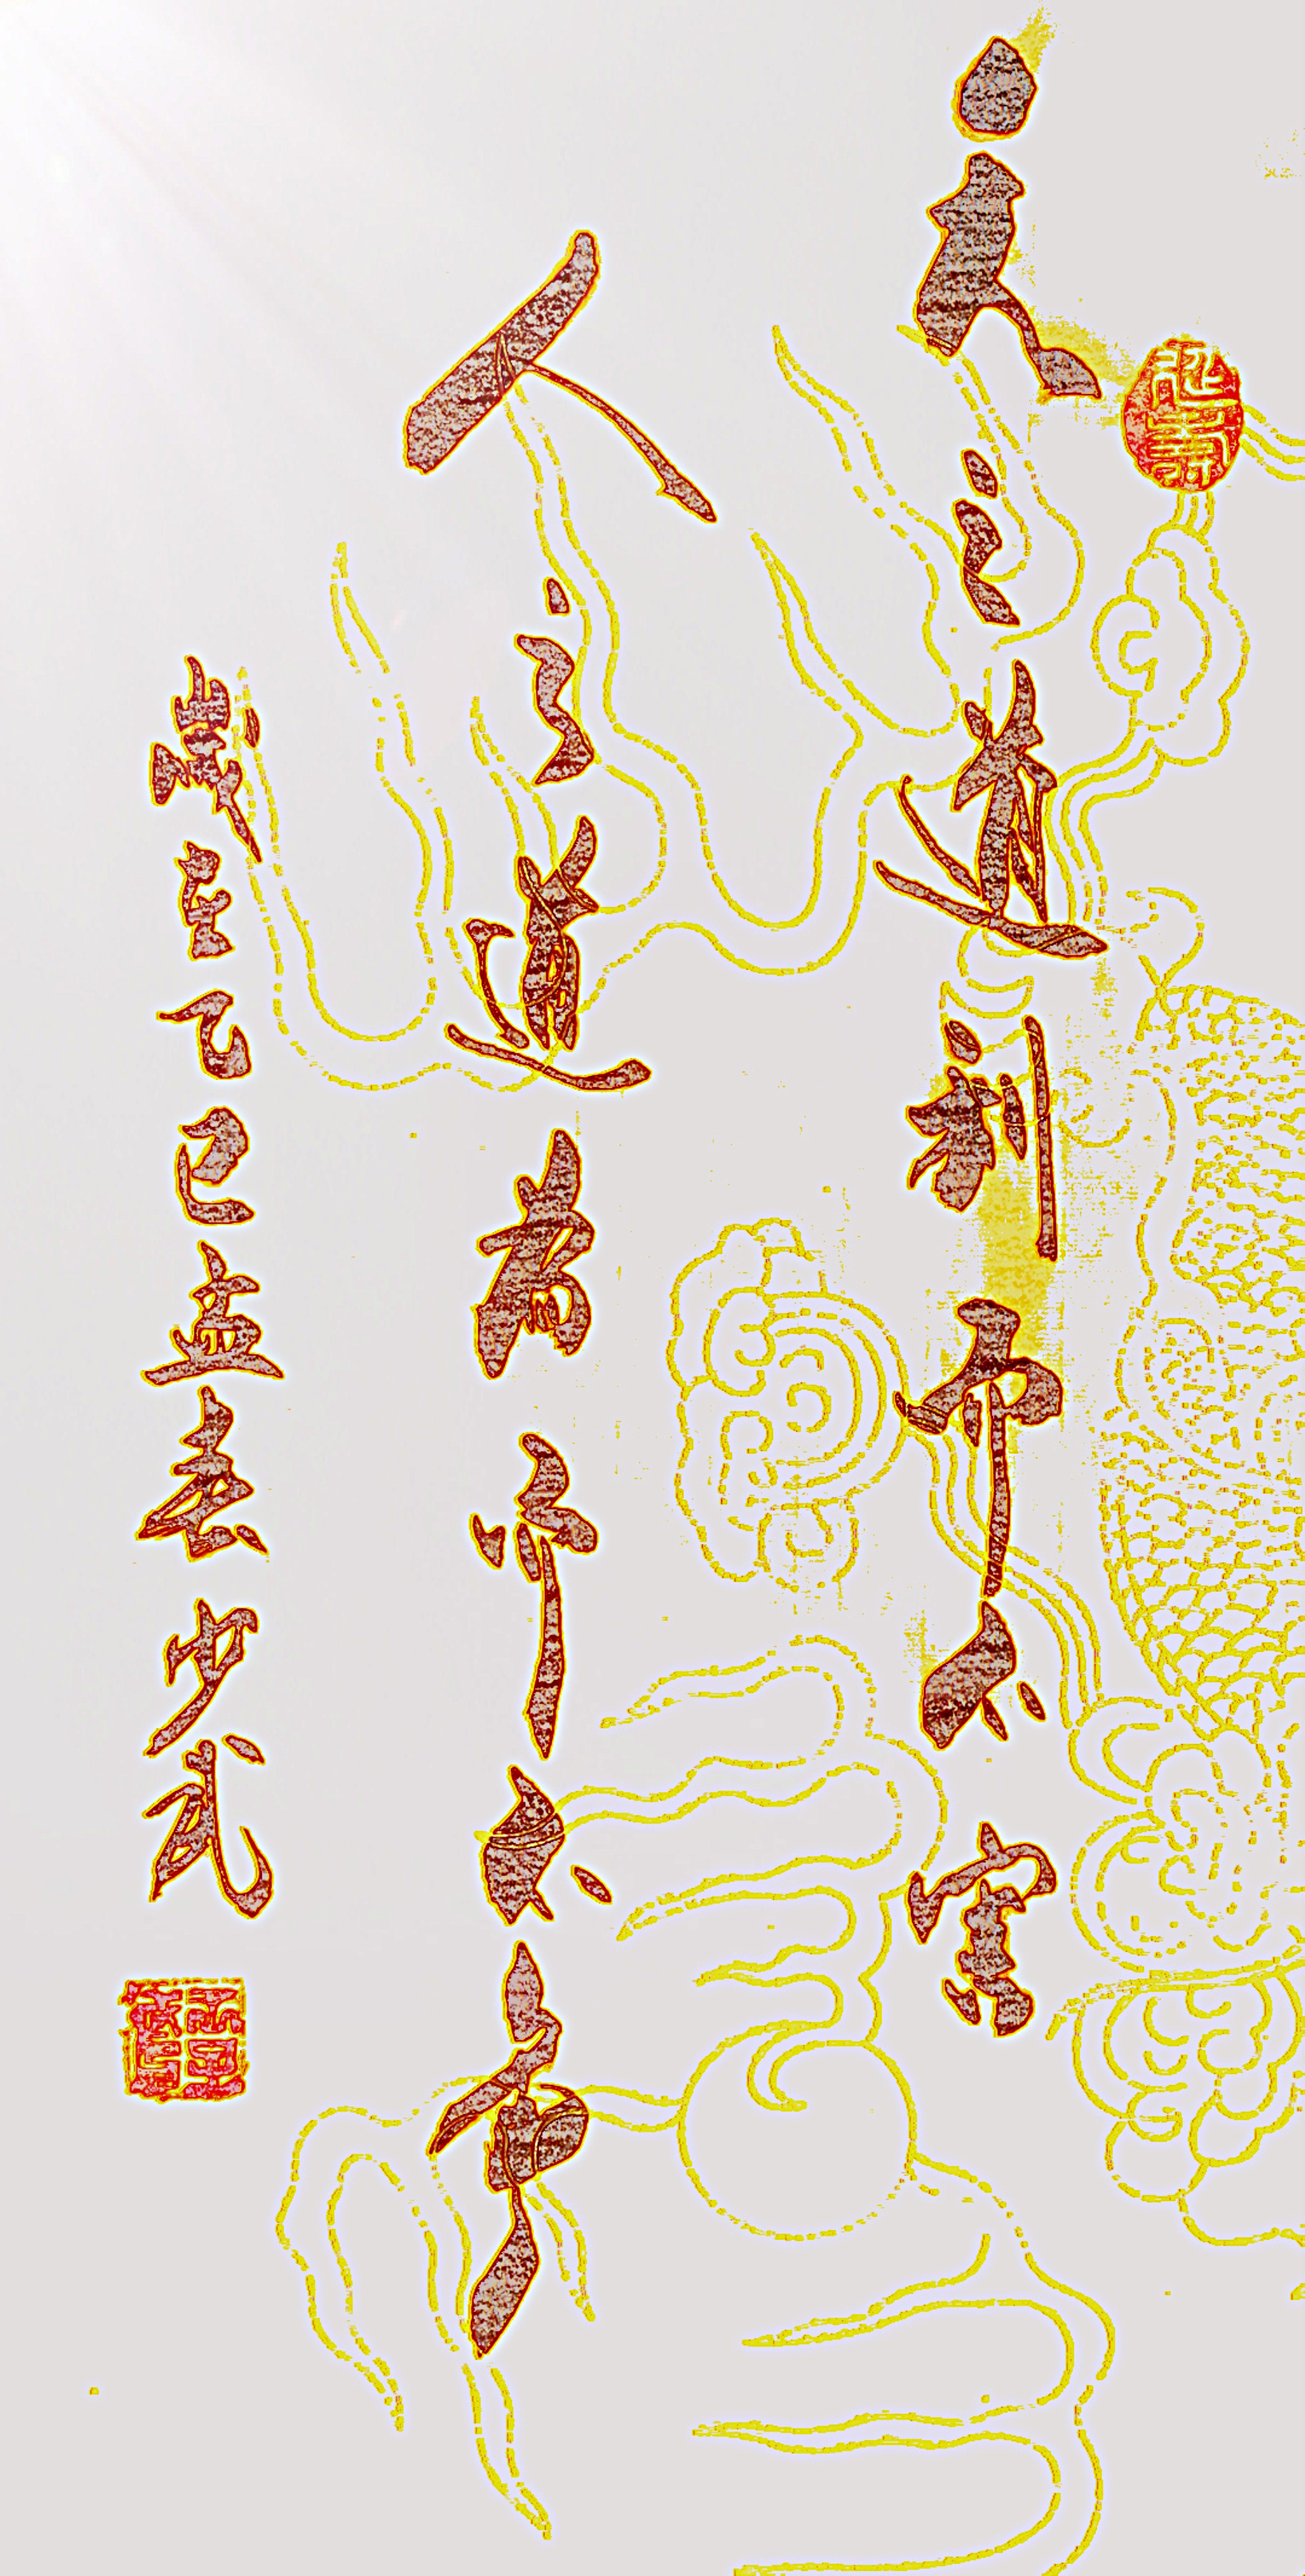 延壽
天之道利而不害
人之道為而不爭
歲在乙巳孟春少武